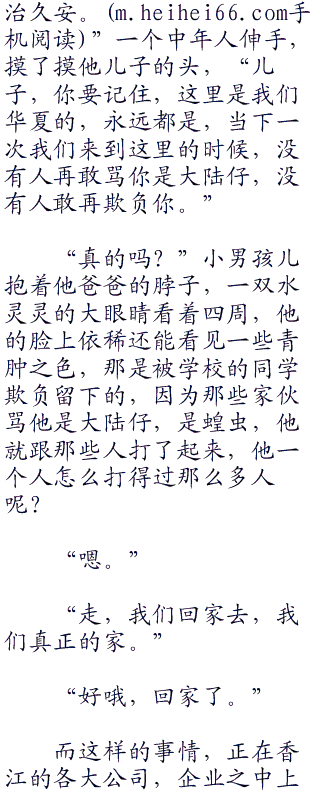 治久安。(m.heihei66.com手
机阅读)”一个中年人伸手，
摸了摸他儿子的头，“儿
子，你要记住，这里是我们
华夏的，永远都是，当下一
次我们来到这里的时候，没
有人再敢骂你是大陆仔，没
有人敢再欺负你。”
“真的吗？”小男孩儿
抱着他爸爸的脖子，一双水
灵灵的大眼睛看着四周，他
的脸上依稀还能看见一些青
肿之色，那是被学校的同学
欺负留下的，因为那些家伙
骂他是大陆仔，是蝗虫，他
就跟那些人打了起来，他一
个人怎么打得过那么多人
呢？
“嗯。”
“走，我们回家去，我
们真正的家。”
“好哦，回家了。”
而这样的事情，正在香
江的各大公司，企业之中上